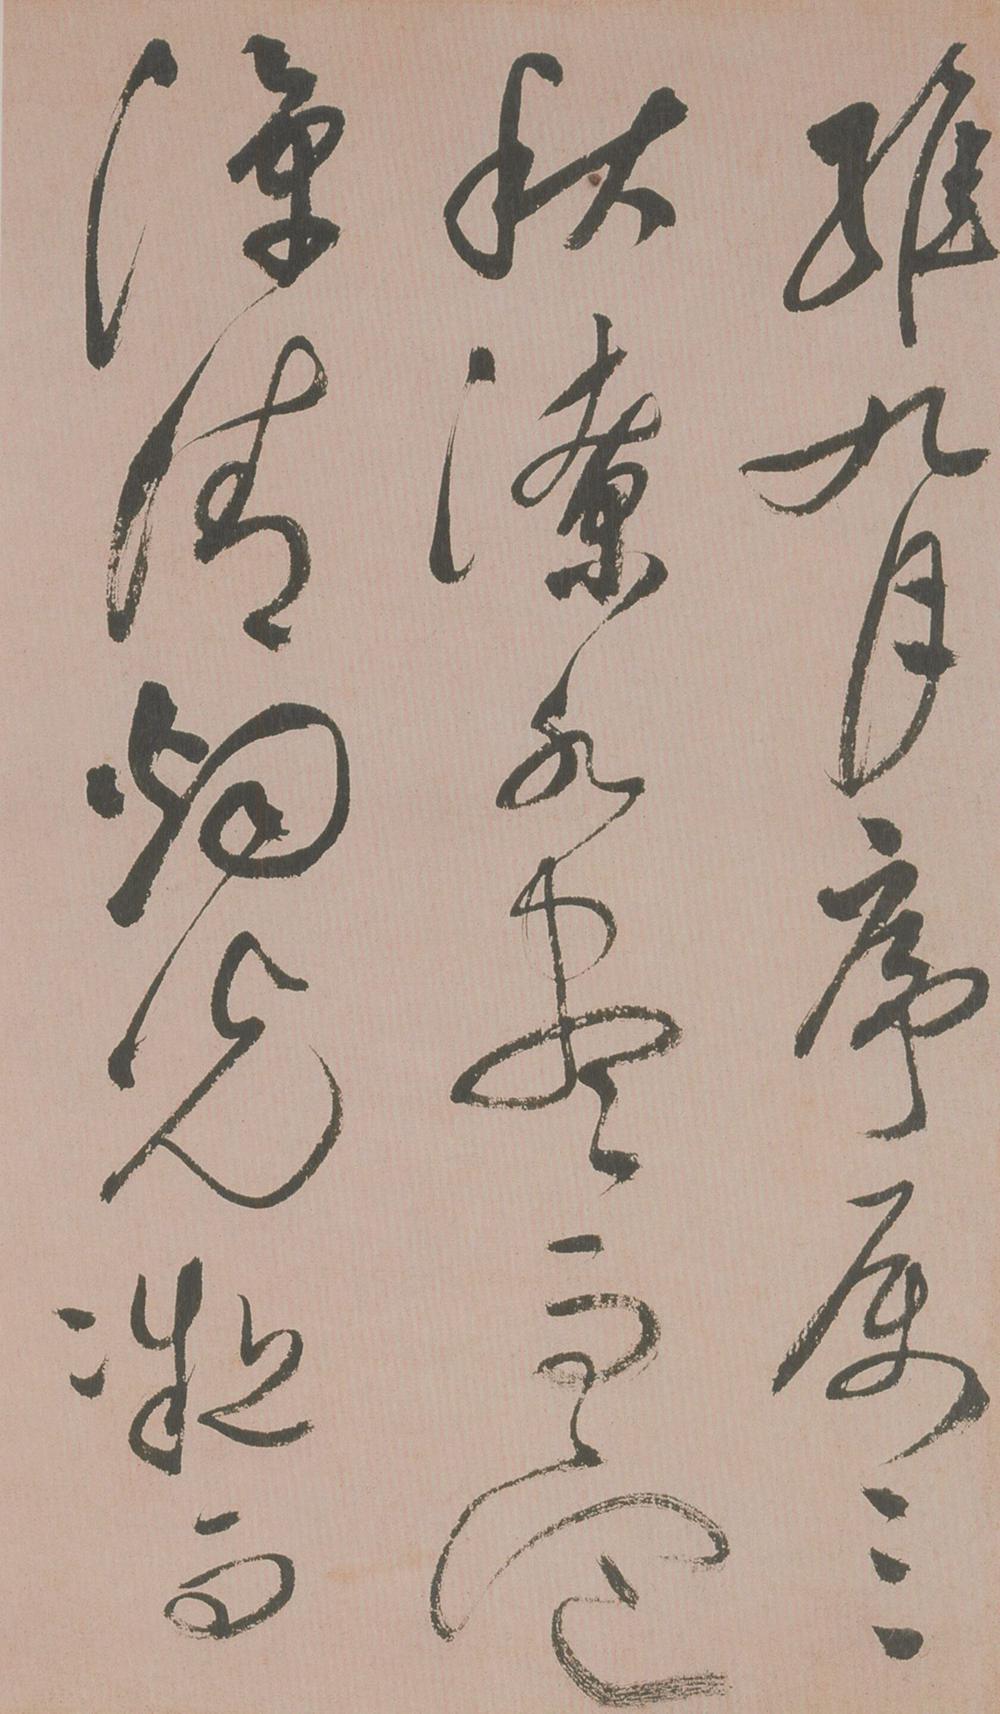 維九月序属三
秋潦水盡而寒
潭清烟光凝而